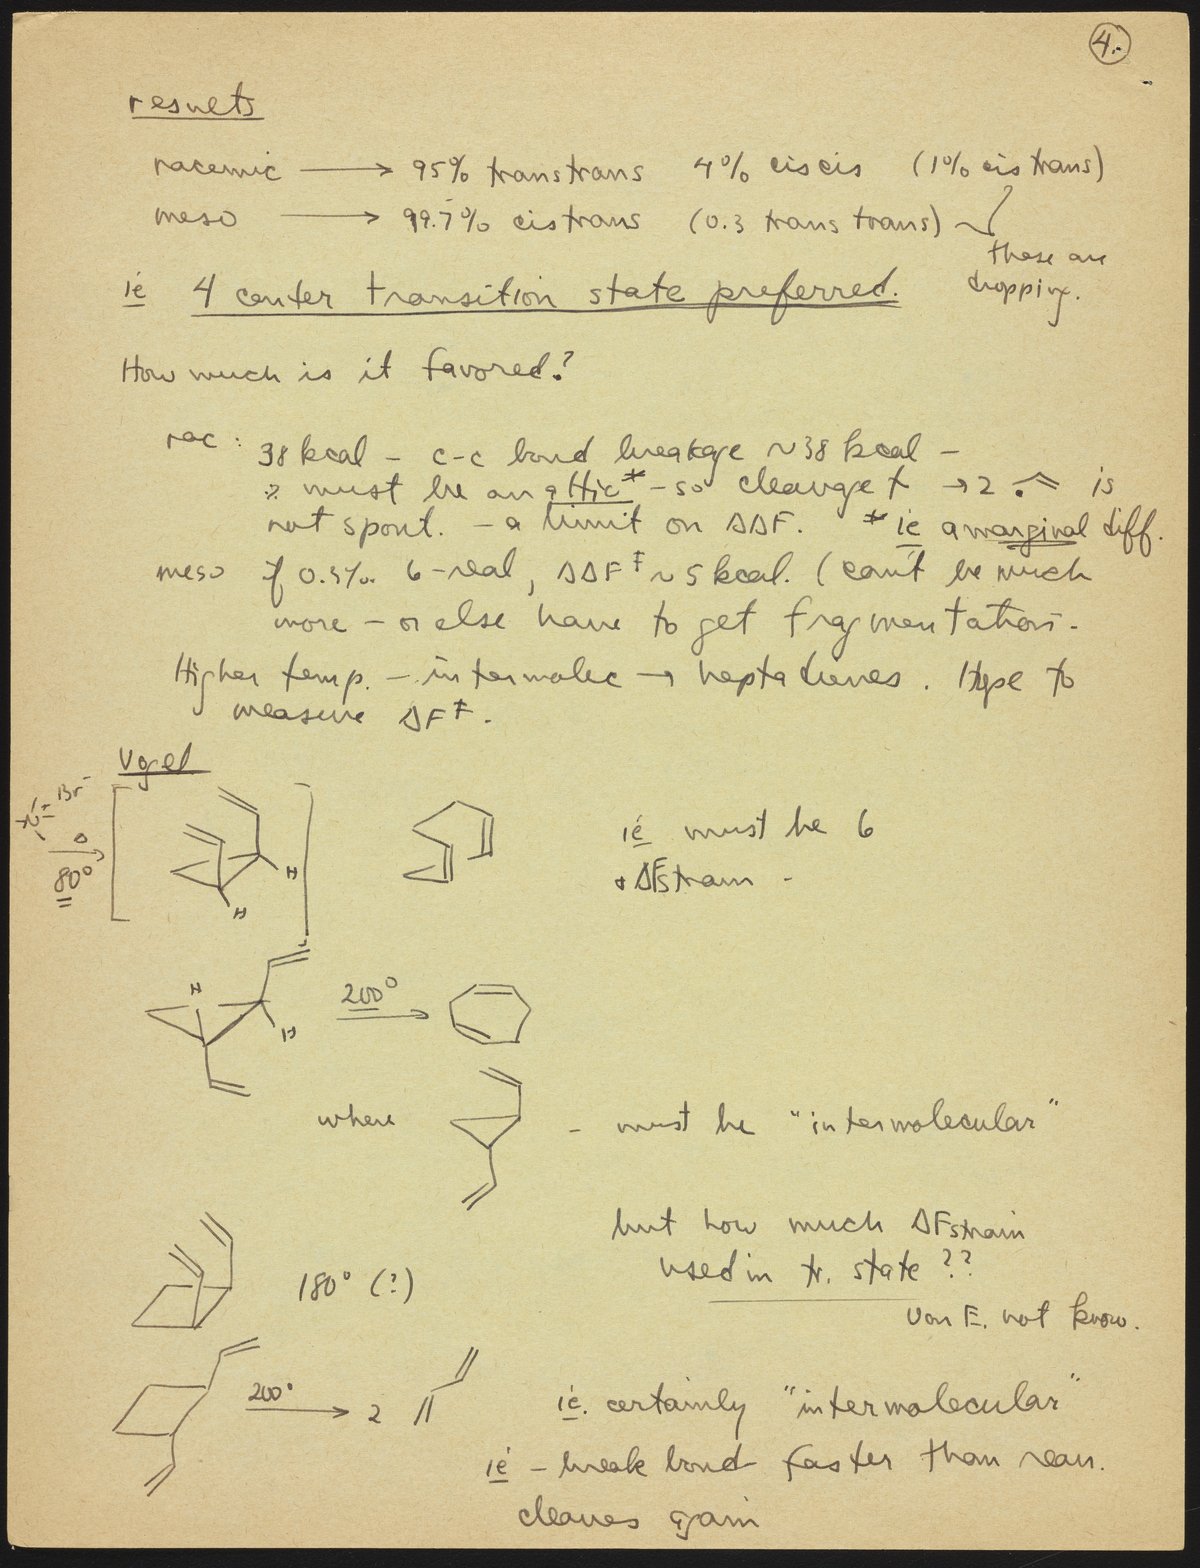 4.
results
racemic → 95% transtrans 4% ciscis (1% cis trans)
meso → 99.7% cistrans (0.3 trans trans)
these are
dropping.
ie 4 center transition state preferred.
How much is it favored?
rac: 38 kcal – c-c bond breakage ~38 kcal –
must be an attic* – so cleavage → 2 is
not spont. – a limit on ΔΔF. * ie a marginal diff.
meso if 0.3%. 6-real, ΔΔF‡ ~ 5 kcal. (can't be much
more – or else have to get fragmentation.
Higher temp. – intermolec → heptadienes. Hope to
measure ΔF‡.
Vogel
Br⁻
80°
H
H
ie must be 6
+ ΔFstrain –
H
H
200°
where
– must be "intermolecular"
but how much ΔFstrain
used in tr. state ??
180° (?)
Von E. not know.
200°
2
ie. certainly "intermolecular"
ie – break bond faster than rearr.
cleaves again